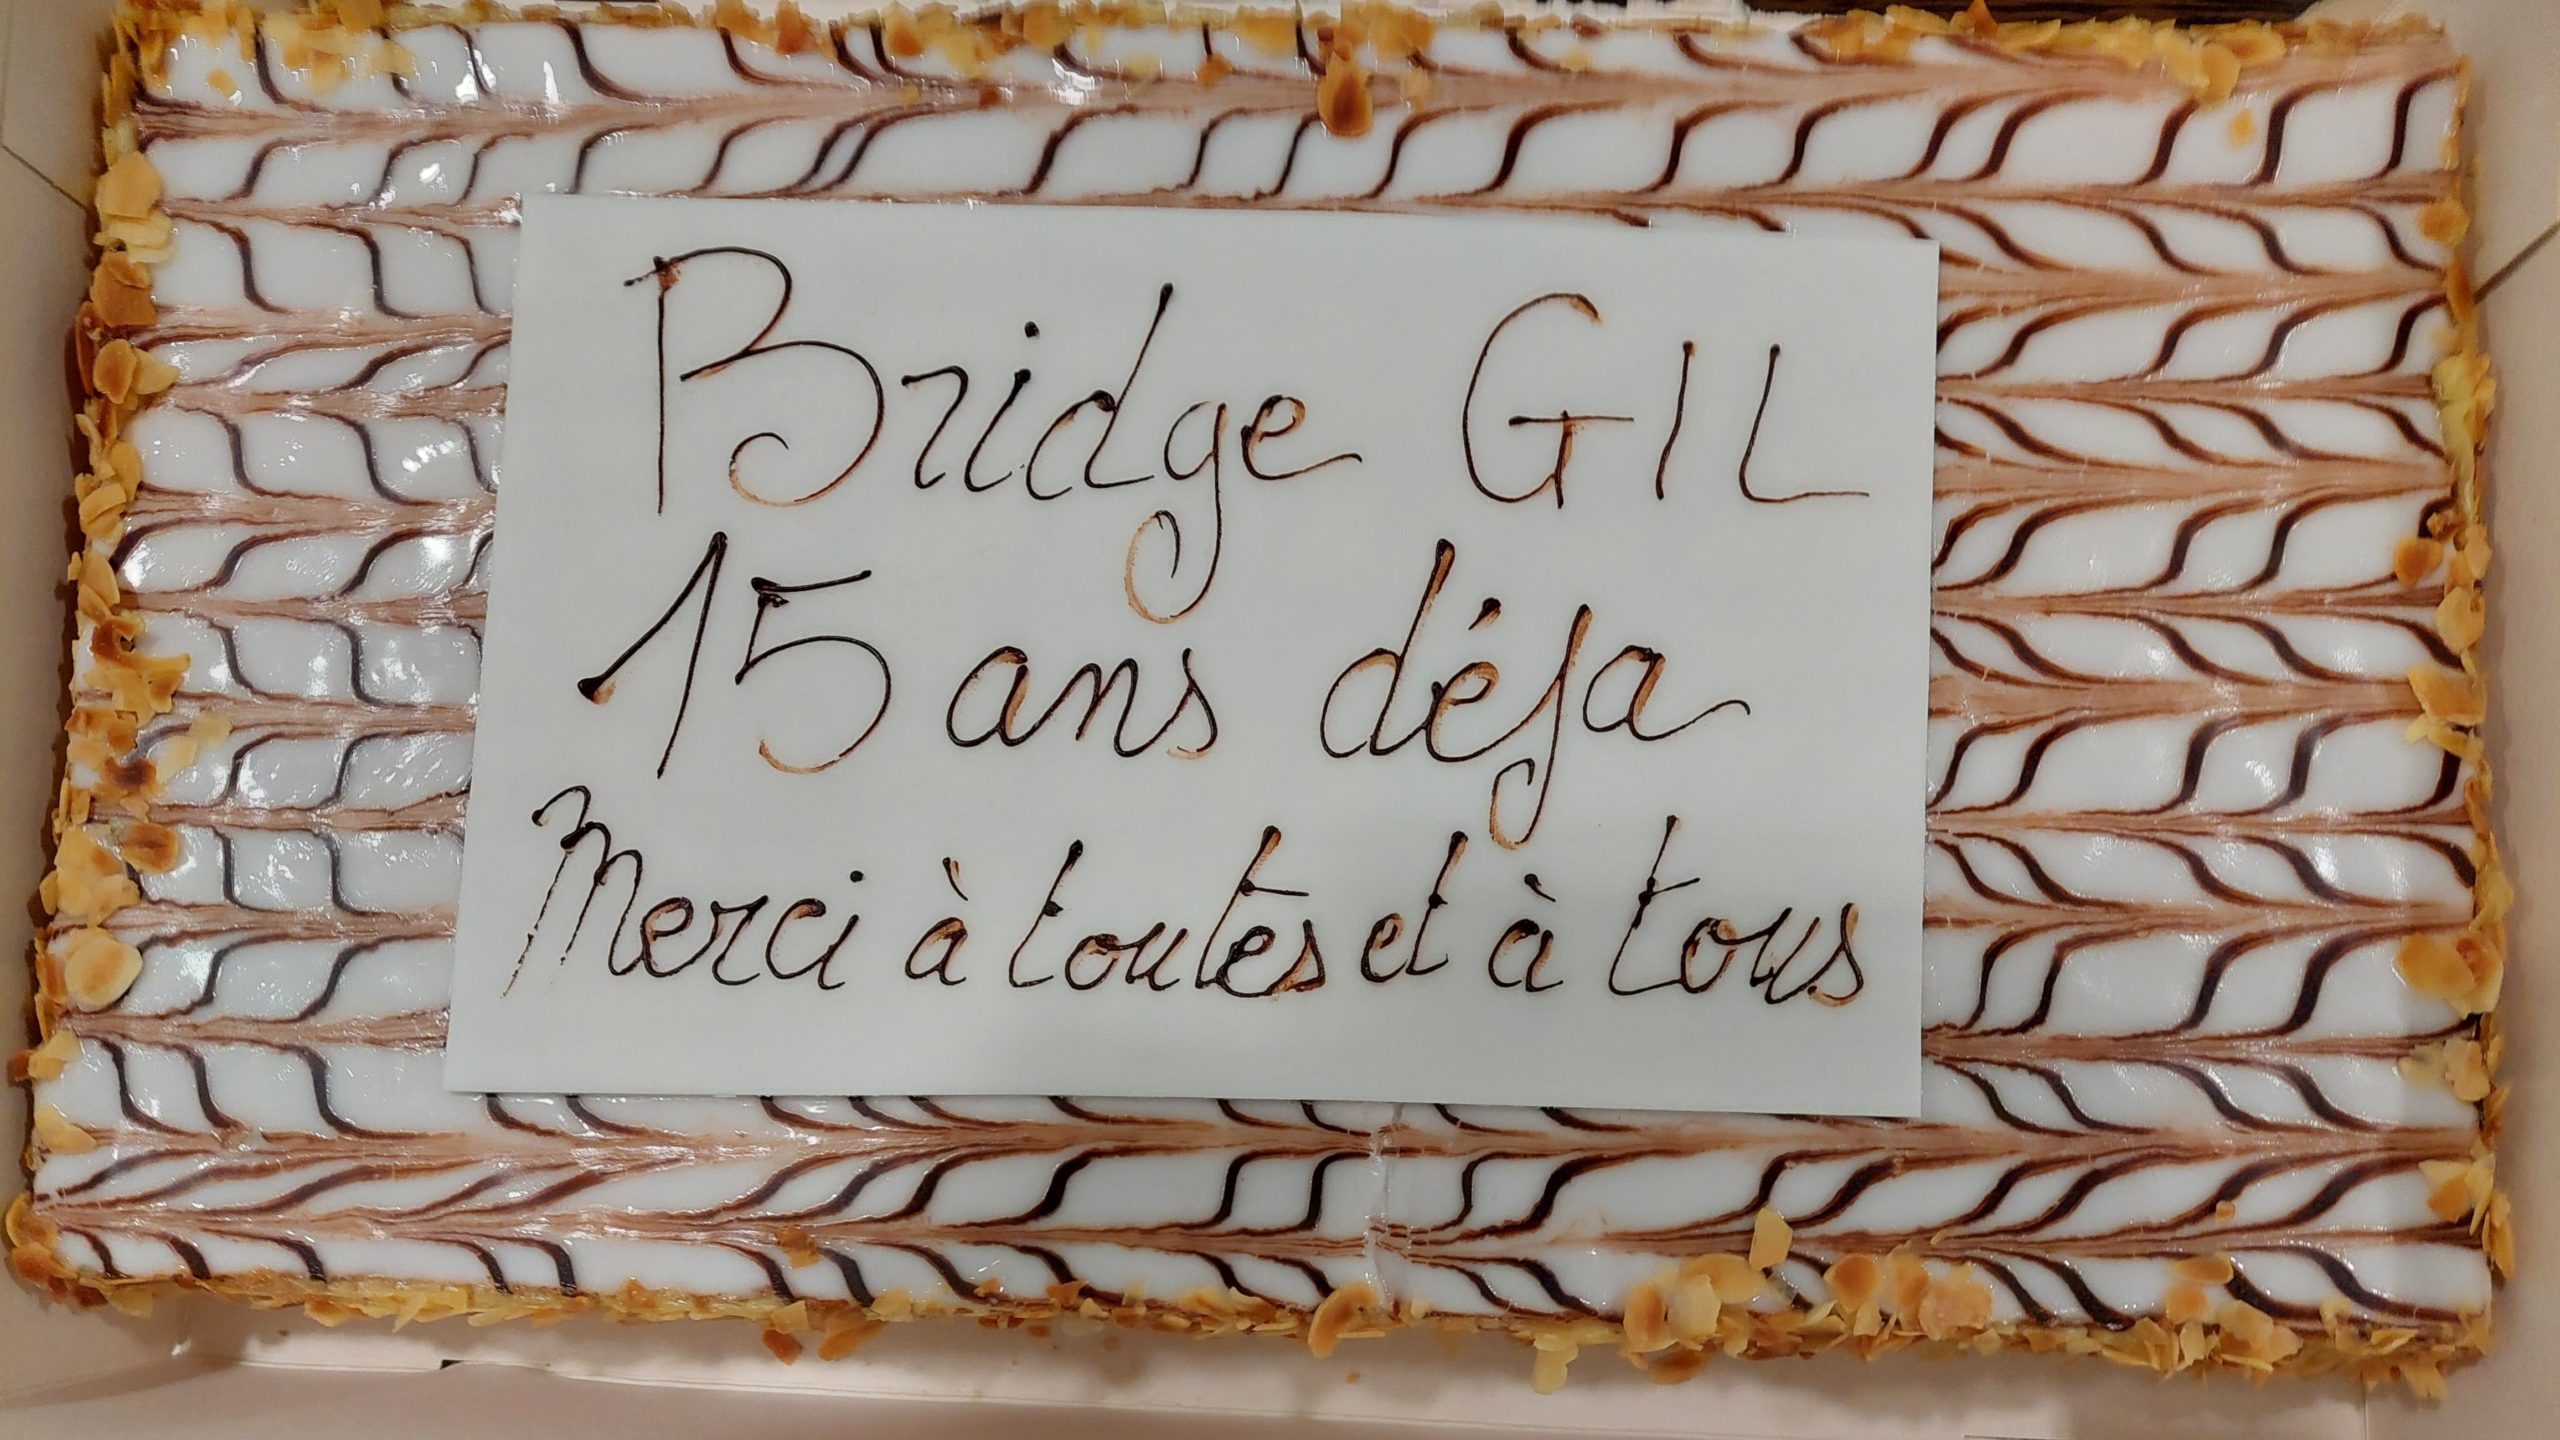 Bridge GIL
15 ans déja
Merci à toutes et à tous